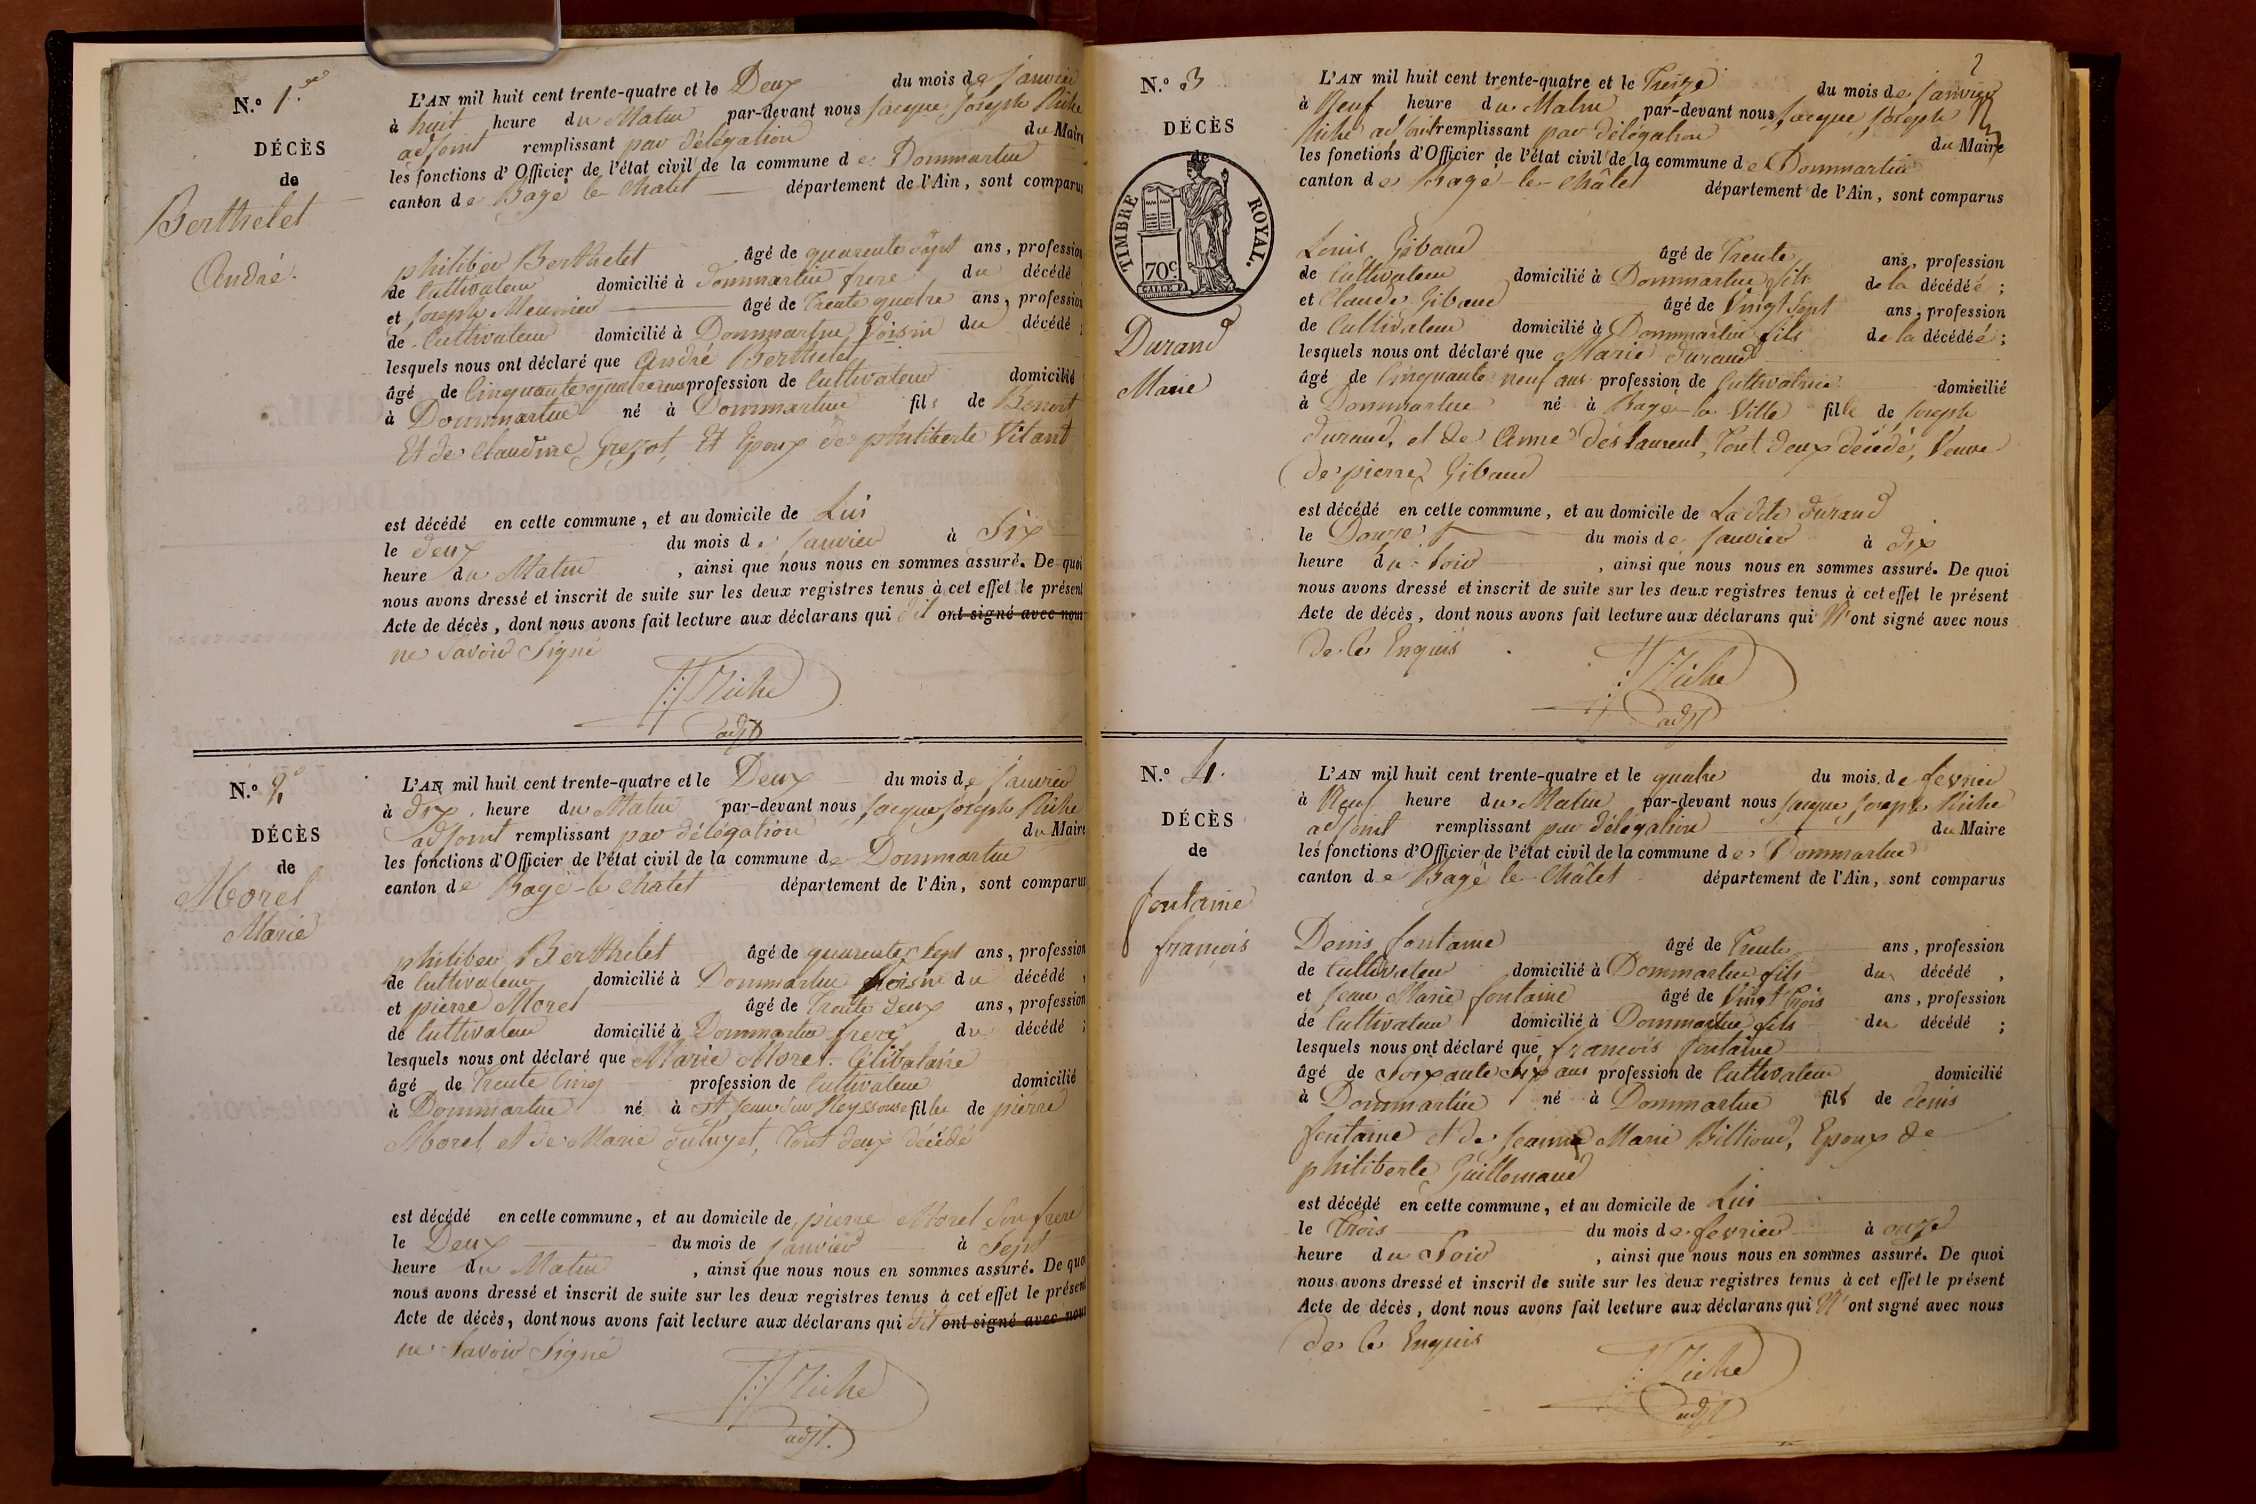 N.º 1.er
DÉCÈS
de
Berthelet
André.
L'AN mil huit cent trente-quatre et le Deux du mois de Janvier
à huit heure du Matin par-devant nous Jacque Joseph Riche
adjoint remplissant par délégation du Maire
les fonctions d'Officier de l'état civil de la commune de Dommartin
canton de Bagé le Chatel département de l'Ain, sont comparus
philiber Berthelet âgé de quarente sept ans, profession
de Cultivateur domicilié à dommartin frere du décédé
et Joseph Meunier âgé de trente quatre ans, profession
de Cultivateur domicilié à Dommartin voisin du décédé ;
lesquels nous ont déclaré que André Berthelet
âgé de Cinquante quatre ans profession de Cultivateur domicilié
à Dommartin né à Dommartin fils de Benoit
Et de Claudine Grezot, Et Epoux de philiberte Vitant
est décédé en cette commune, et au domicile de Lui
le deux du mois de Janvier à Six
heure du Matin , ainsi que nous nous en sommes assuré. De quoi
nous avons dressé et inscrit de suite sur les deux registres tenus à cet effet le présent
Acte de décès, dont nous avons fait lecture aux déclarans qui dit ont signé avec nous
ne savoir Signé
Riche
adjt
N.º 2
DÉCÈS
de
Morel
Marie
L'AN mil huit cent trente-quatre et le Deux du mois de Janvier
à dix heure du Matin par-devant nous Jacque Joseph Riche
adjoint remplissant par délégation du Maire
les fonctions d'Officier de l'état civil de la commune de Dommartin
canton de Bagé-le Chatel département de l'Ain, sont comparus
philiber Berthelet âgé de quarente sept ans, profession
de Cultivateur domicilié à Dommartin voisin du décédé ,
et pierre Morel âgé de trente deux ans, profession
de Cultivateur domicilié à Dommartin frere du décédé ;
lesquels nous ont déclaré que Marie Morel Célibataire
âgé de trente Cinq profession de Cultivateur domicilié
à Dommartin né à St Jean sur Reyssouse fille de pierre
Morel et de Marie duluyet, tout deux décédé
est décédé en cette commune, et au domicile de pierre Morel Son frere
le Deux du mois de Janvier à Sept
heure du Matin , ainsi que nous nous en sommes assuré. De quoi
nous avons dressé et inscrit de suite sur les deux registres tenus à cet effet le présent
Acte de décès, dont nous avons fait lecture aux déclarans qui dit ont signé avec nous
ne savoir Signé
Riche
adjt.
2
N.º 3
DÉCÈS
TIMBRE ROYAL.
70c
Durand
Marie
L'AN mil huit cent trente-quatre et le Treize du mois de Janvier
à Neuf heure du Matin par-devant nous Jacque Joseph
Riche adjoint remplissant par délégation du Maire
les fonctions d'Officier de l'état civil de la commune de Dommartin
canton de Bagé-le-Châtel département de l'Ain, sont comparus
Louis Gibaud âgé de Trente ans, profession
de Cultivateur domicilié à Dommartin fils de la décédée ;
et Claude Gibaud âgé de Vingt sept ans, profession
de Cultivateur domicilié à Dommartin fils de la décédée ;
lesquels nous ont déclaré que Marie durand
âgé de Cinquante neuf ans profession de Cultivatrice domicilié
à Dommartin né à Bagé-la Ville fille de Joseph
durand, et de Anne deslaurent, tout deux décédé, Veuve
de pierre Gibaud
est décédé en cette commune, et au domicile de La dite durand
le Douze du mois de Janvier à dix
heure du Soir , ainsi que nous nous en sommes assuré. De quoi
nous avons dressé et inscrit de suite sur les deux registres tenus à cet effet le présent
Acte de décès, dont nous avons fait lecture aux déclarans qui N'ont signé avec nous
de ce Enquis
Riche
adjt
N.º 4.
DÉCÈS
de
fontaine
françois
L'AN mil huit cent trente-quatre et le quatre du mois de fevrier
à Neuf heure du Matin par-devant nous Jacque Joseph Riche
adjoint remplissant par délégation du Maire
les fonctions d'Officier de l'état civil de la commune de Dommartin
canton de Bagé le Châtel département de l'Ain, sont comparus
Denis fontaine âgé de Trente ans, profession
de Cultivateur domicilié à Dommartin fils du décédé ,
et Jean Marie fontaine âgé de Vingt trois ans, profession
de Cultivateur domicilié à Dommartin fils du décédé ;
lesquels nous ont déclaré que françois fontaine
âgé de Soixante Six ans profession de Cultivateur domicilié
à Dommartin né à Dommartin fils de denis
fontaine et de Jeanne Marie Billioud, Epoux de
philiberte Guillemaud
est décédé en cette commune, et au domicile de Lui
le trois du mois de fevrier à onze
heure du Soir , ainsi que nous nous en sommes assuré. De quoi
nous avons dressé et inscrit de suite sur les deux registres tenus à cet effet le présent
Acte de décès, dont nous avons fait lecture aux déclarans qui N'ont signé avec nous
de ce Enquis
Riche
adjt